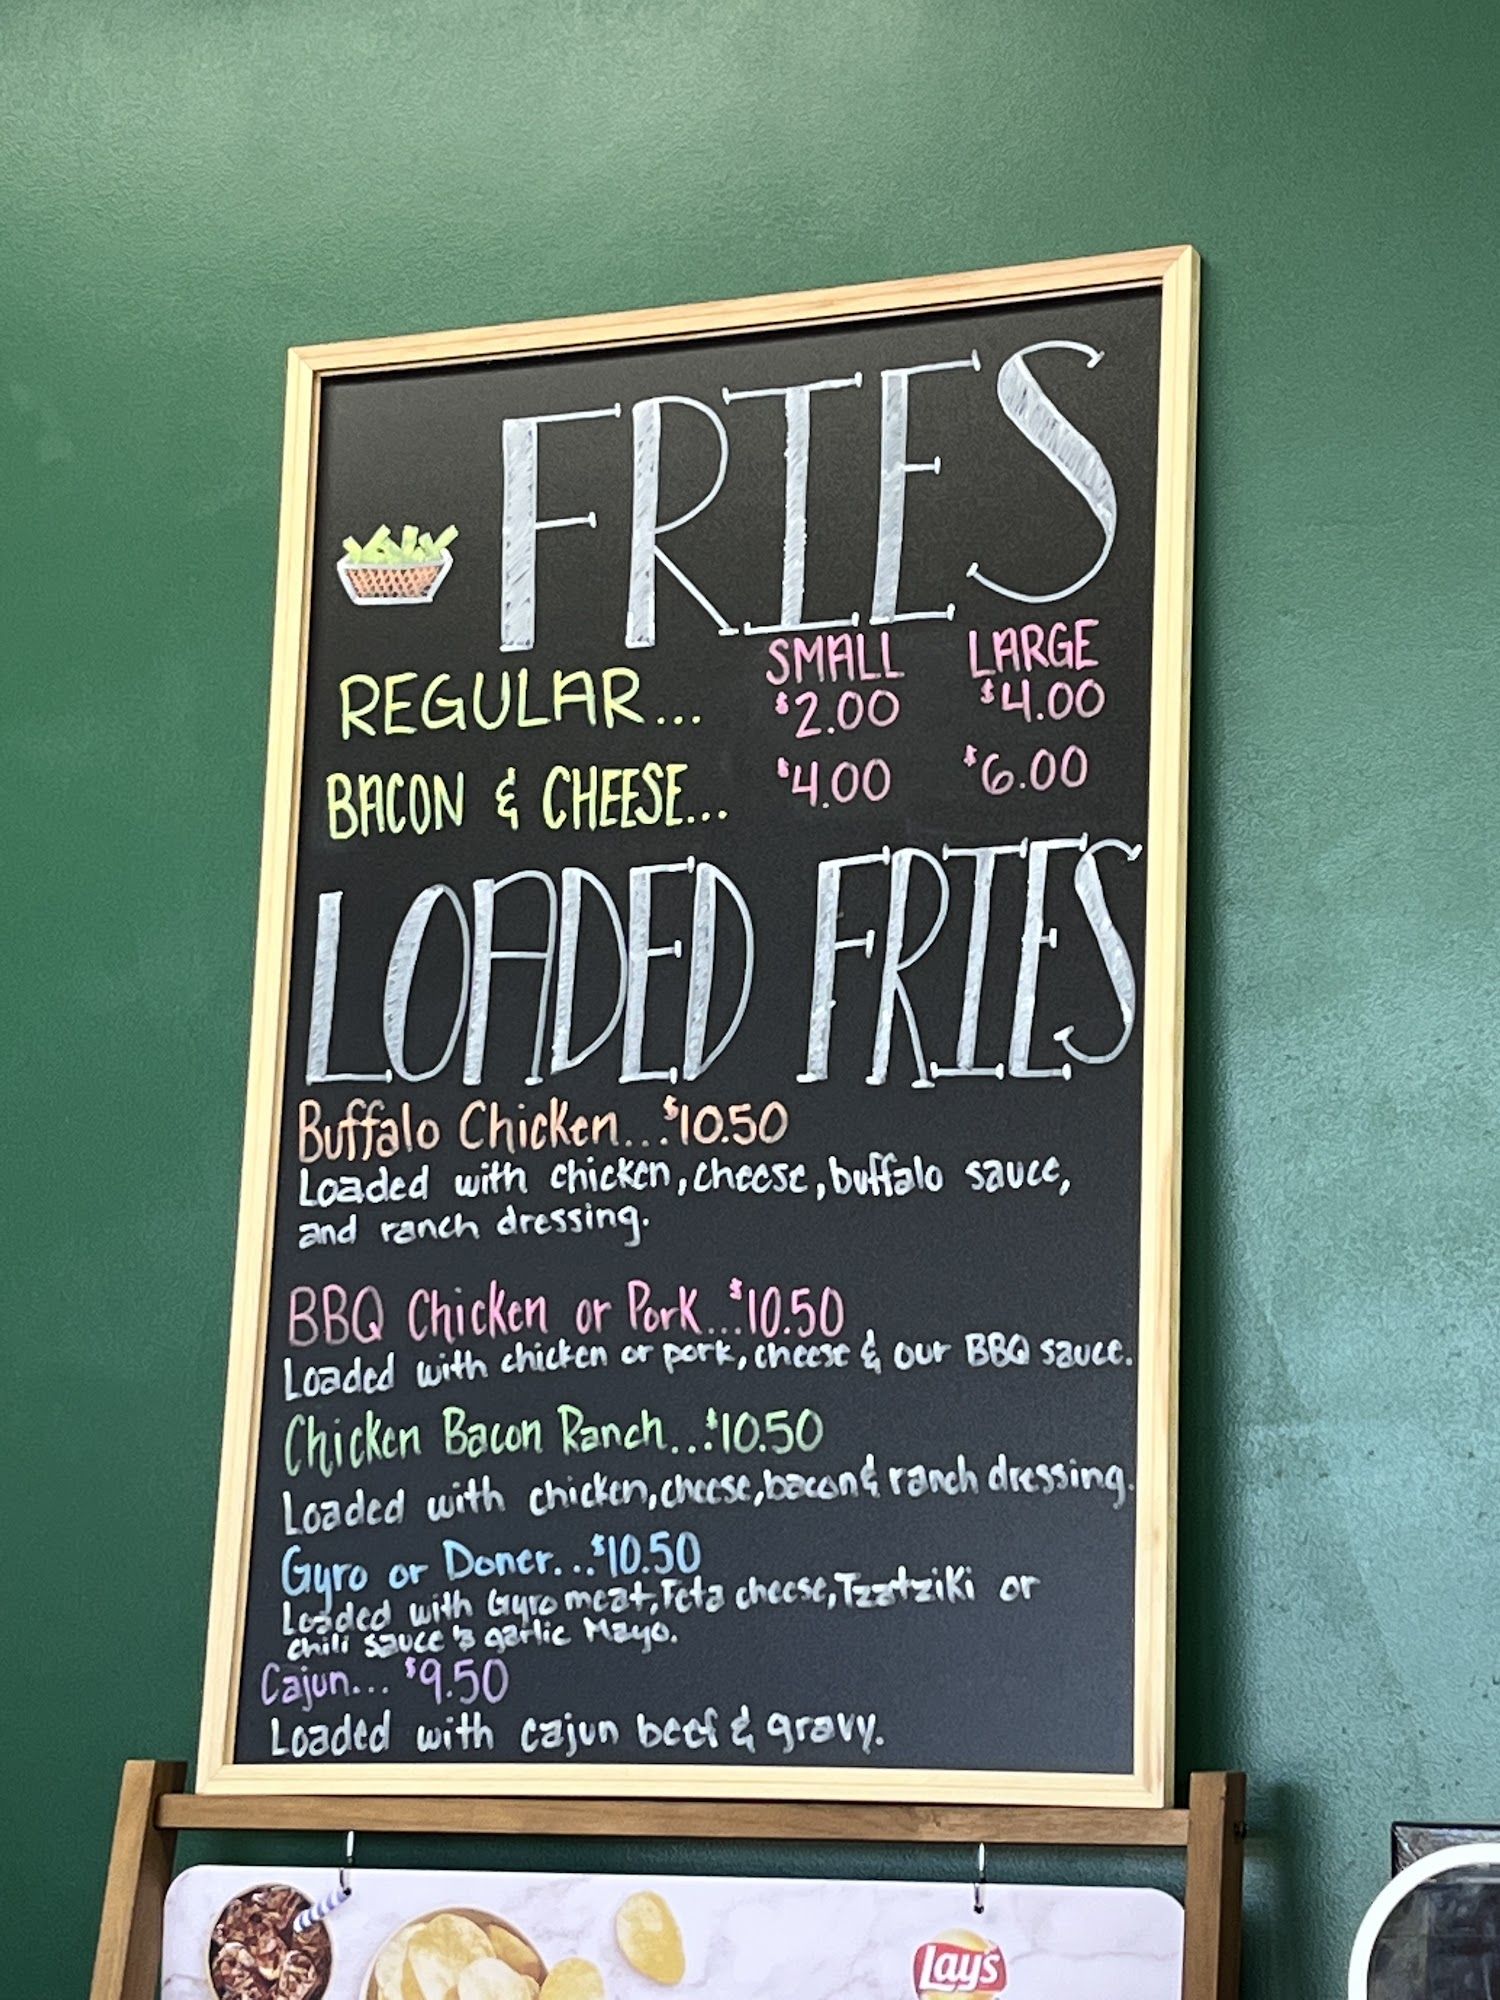 FRIES
SMALL LARGE
REGULAR... $2.00 $4.00
BACON & CHEESE... $4.00 $6.00
LOADED FRIES
Buffalo Chicken...$10.50
Loaded with chicken, cheese, buffalo sauce,
and ranch dressing.
BBQ Chicken or Pork...$10.50
Loaded with chicken or pork, cheese & our BBQ sauce.
Chicken Bacon Ranch...$10.50
Loaded with chicken, cheese, bacon & ranch dressing.
Gyro or Doner...$10.50
Loaded with Gyro meat, Feta cheese, Tzatziki or
chili sauce & garlic Mayo.
Cajun... $9.50
Loaded with cajun beef & gravy.
Lay's